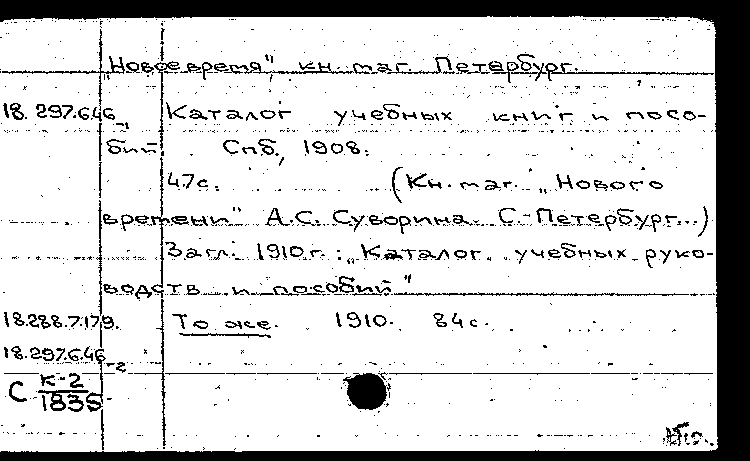 „Новое время", кн. маг. Петербург.
18.297.6.46 -1 Каталог учебных книг и посо-
бий. Спб., 1908.
47с. (Кн. маг. „Нового
времени" А.С. Суворина. С.-Петербург...)
Загл. 1910г.: „Каталог учебных руко-
водств и пособий"
18.288.7.179. То же. 1910. 84с.
18.297.6.46 -2
С К-2
1835